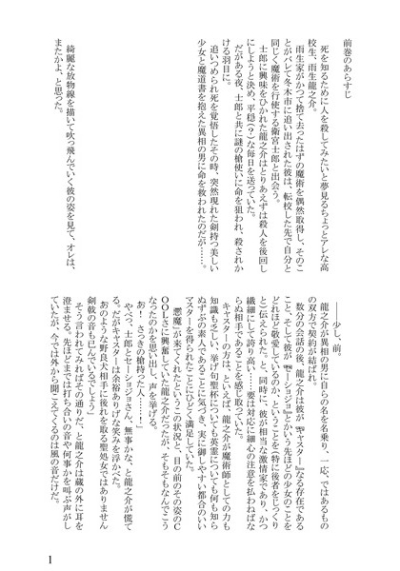 前巻のあらすじ
死を知るために人を殺してみたいと夢見るちょっとアレな高
校生、雨生龍之介。
雨生家がかつて捨て去ったはずの魔術を偶然取得し、そのこ
とがバレて冬木市に追い出された彼は、転校した先で自分と
同じく魔術を行使する衛宮士郎と出会う。
士郎に興味をひかれた龍之介はとりあえずは殺人を後回し
にしようと決め、平穏（？）な毎日を送っていた。
だがある夜、士郎と共に謎の槍使いに命を狙われ、殺されか
ける羽目に。
追いつめられ死を覚悟したその時、突然現れた剣持つ美しい
少女と魔道書を抱えた異相の男に命を救われたのだが……。
綺麗な放物線を描いて吹っ飛んでいく彼の姿を見て、オレは、
またかよ、と思った。
――少し、前。
龍之介が異相の男に自らの名を名乗り、一応、ではあるもの
の双方で契約が結ばれ。
数分の会話の後、龍之介は彼が『キャスター』なる存在である
こと、そして彼が『セーショジョ』とかいう先ほどの少女のことを
どれほど敬愛しているのか、ということを（特に後者をじっくり
と）伝えられた。と、同時に、彼が相当な激情家であり、かつ
繊細にして誇り高い……要は対応に細心の注意を払わねばな
らぬ相手であることをも感じ取っていた。
キャスターの方は、といえば、龍之介が魔術師としての力も
知識も乏しい、挙げ句聖杯についても英霊についても何も知ら
ぬずぶの素人であることに気づき、実に御しやすい都合のいい
マスターを得られたことにひどく満足していた。
悪魔が来てくれたというこの状況に、目の前のその姿のＣ
ＯＯＬさに興奮していた龍之介だったが、そもそもなんでこう
なったのかを思い出し、声を挙げる。
「あ！　さっきの槍持った人……！」
やべっ、士郎とセーショジョさん、無事かな、と龍之介が慌て
る。だがキャスターは余裕ありげな笑みを浮かべた。
「あのような野良犬相手に後れを取る聖処女ではありません
剣戟の音も已んでいるでしょう」
そう言われてみればその通りだ、と龍之介は蔵の外に耳を
澄ませる。先ほどまでは打ち合いの音や何事かを叫ぶ声がし
ていたが、今では外から聞こえてくるのは風の音だけだ。
1